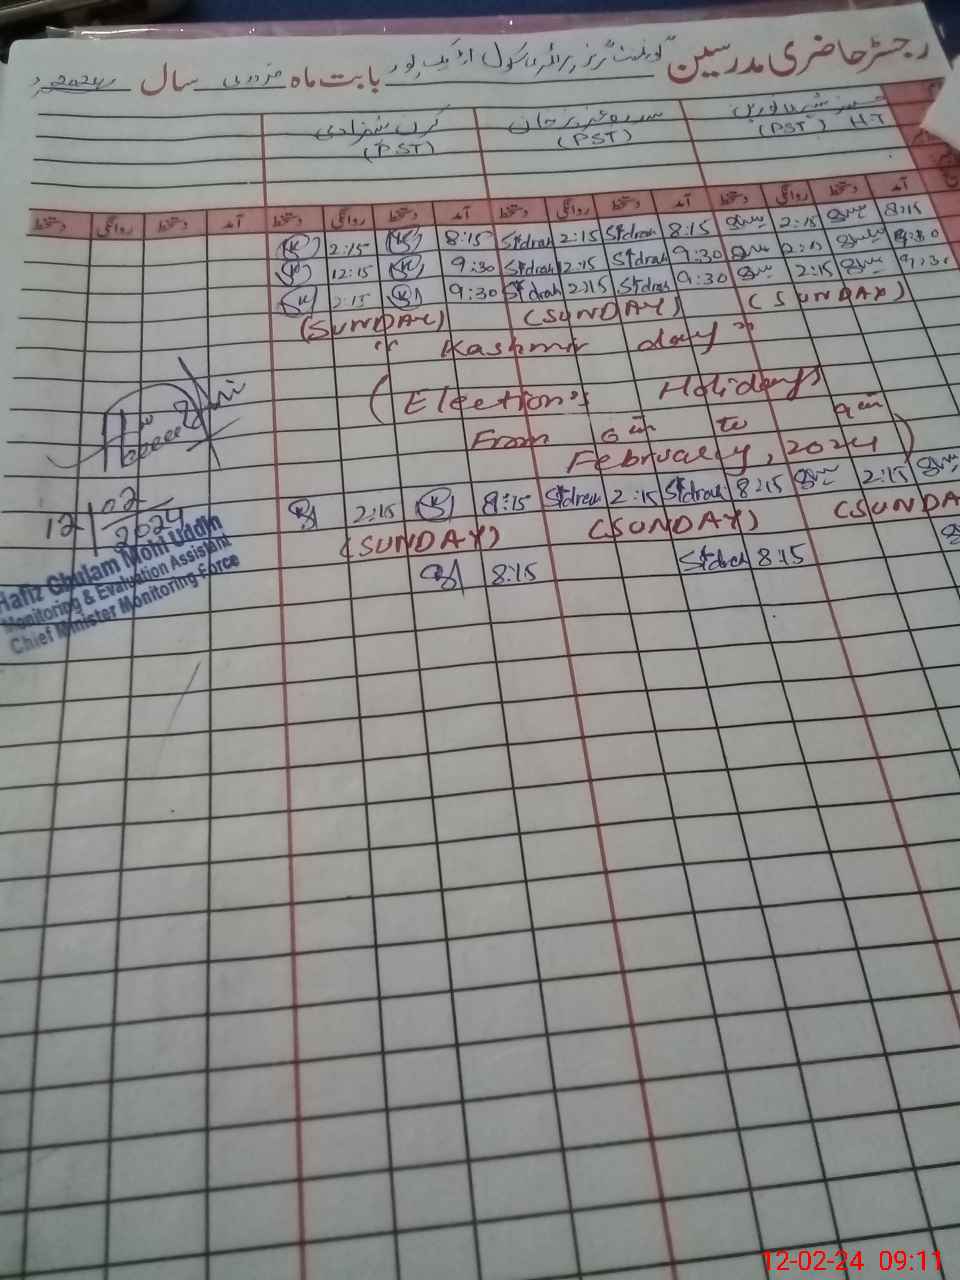 رجسٹر حاضری مدرسین گورنمنٹ گرلز پرائمری سکول بابت ماہ فروری سال 2024ء
کرن شہزادی سدرہ خان
(PST) (PST) (PST) HT
آمد دستخط روانگی دستخط آمد دستخط روانگی دستخط آمد دستخط روانگی دستخط آمد دستخط روانگی دستخط
2:15 8:15 Sidrah 2:15 Sidrah 8:15 2:15 8:15
12:15 9:30 Sidrah 2:15 Sidrah 9:30 2:15 9:30
2:15 9:30 Sidrah 2:15 Sidrah 9:30 2:15 9:30
(SUNDAY) (SUNDAY) (SUNDAY)
" Kashmir day "
( Election's Holidays
From 6th to 9th
February, 2024 )
2:15 8:15 Sidrah 2:15 Sidrah 8:15 2:15
(SUNDAY) (SUNDAY) (SUNDA
8:15 Sidrah 8:15
12/02/2024
Hafiz Ghulam Mohi Uddin
Monitoring & Evaluation Assistant
Chief Minister Monitoring Force
12-02-24 09:11